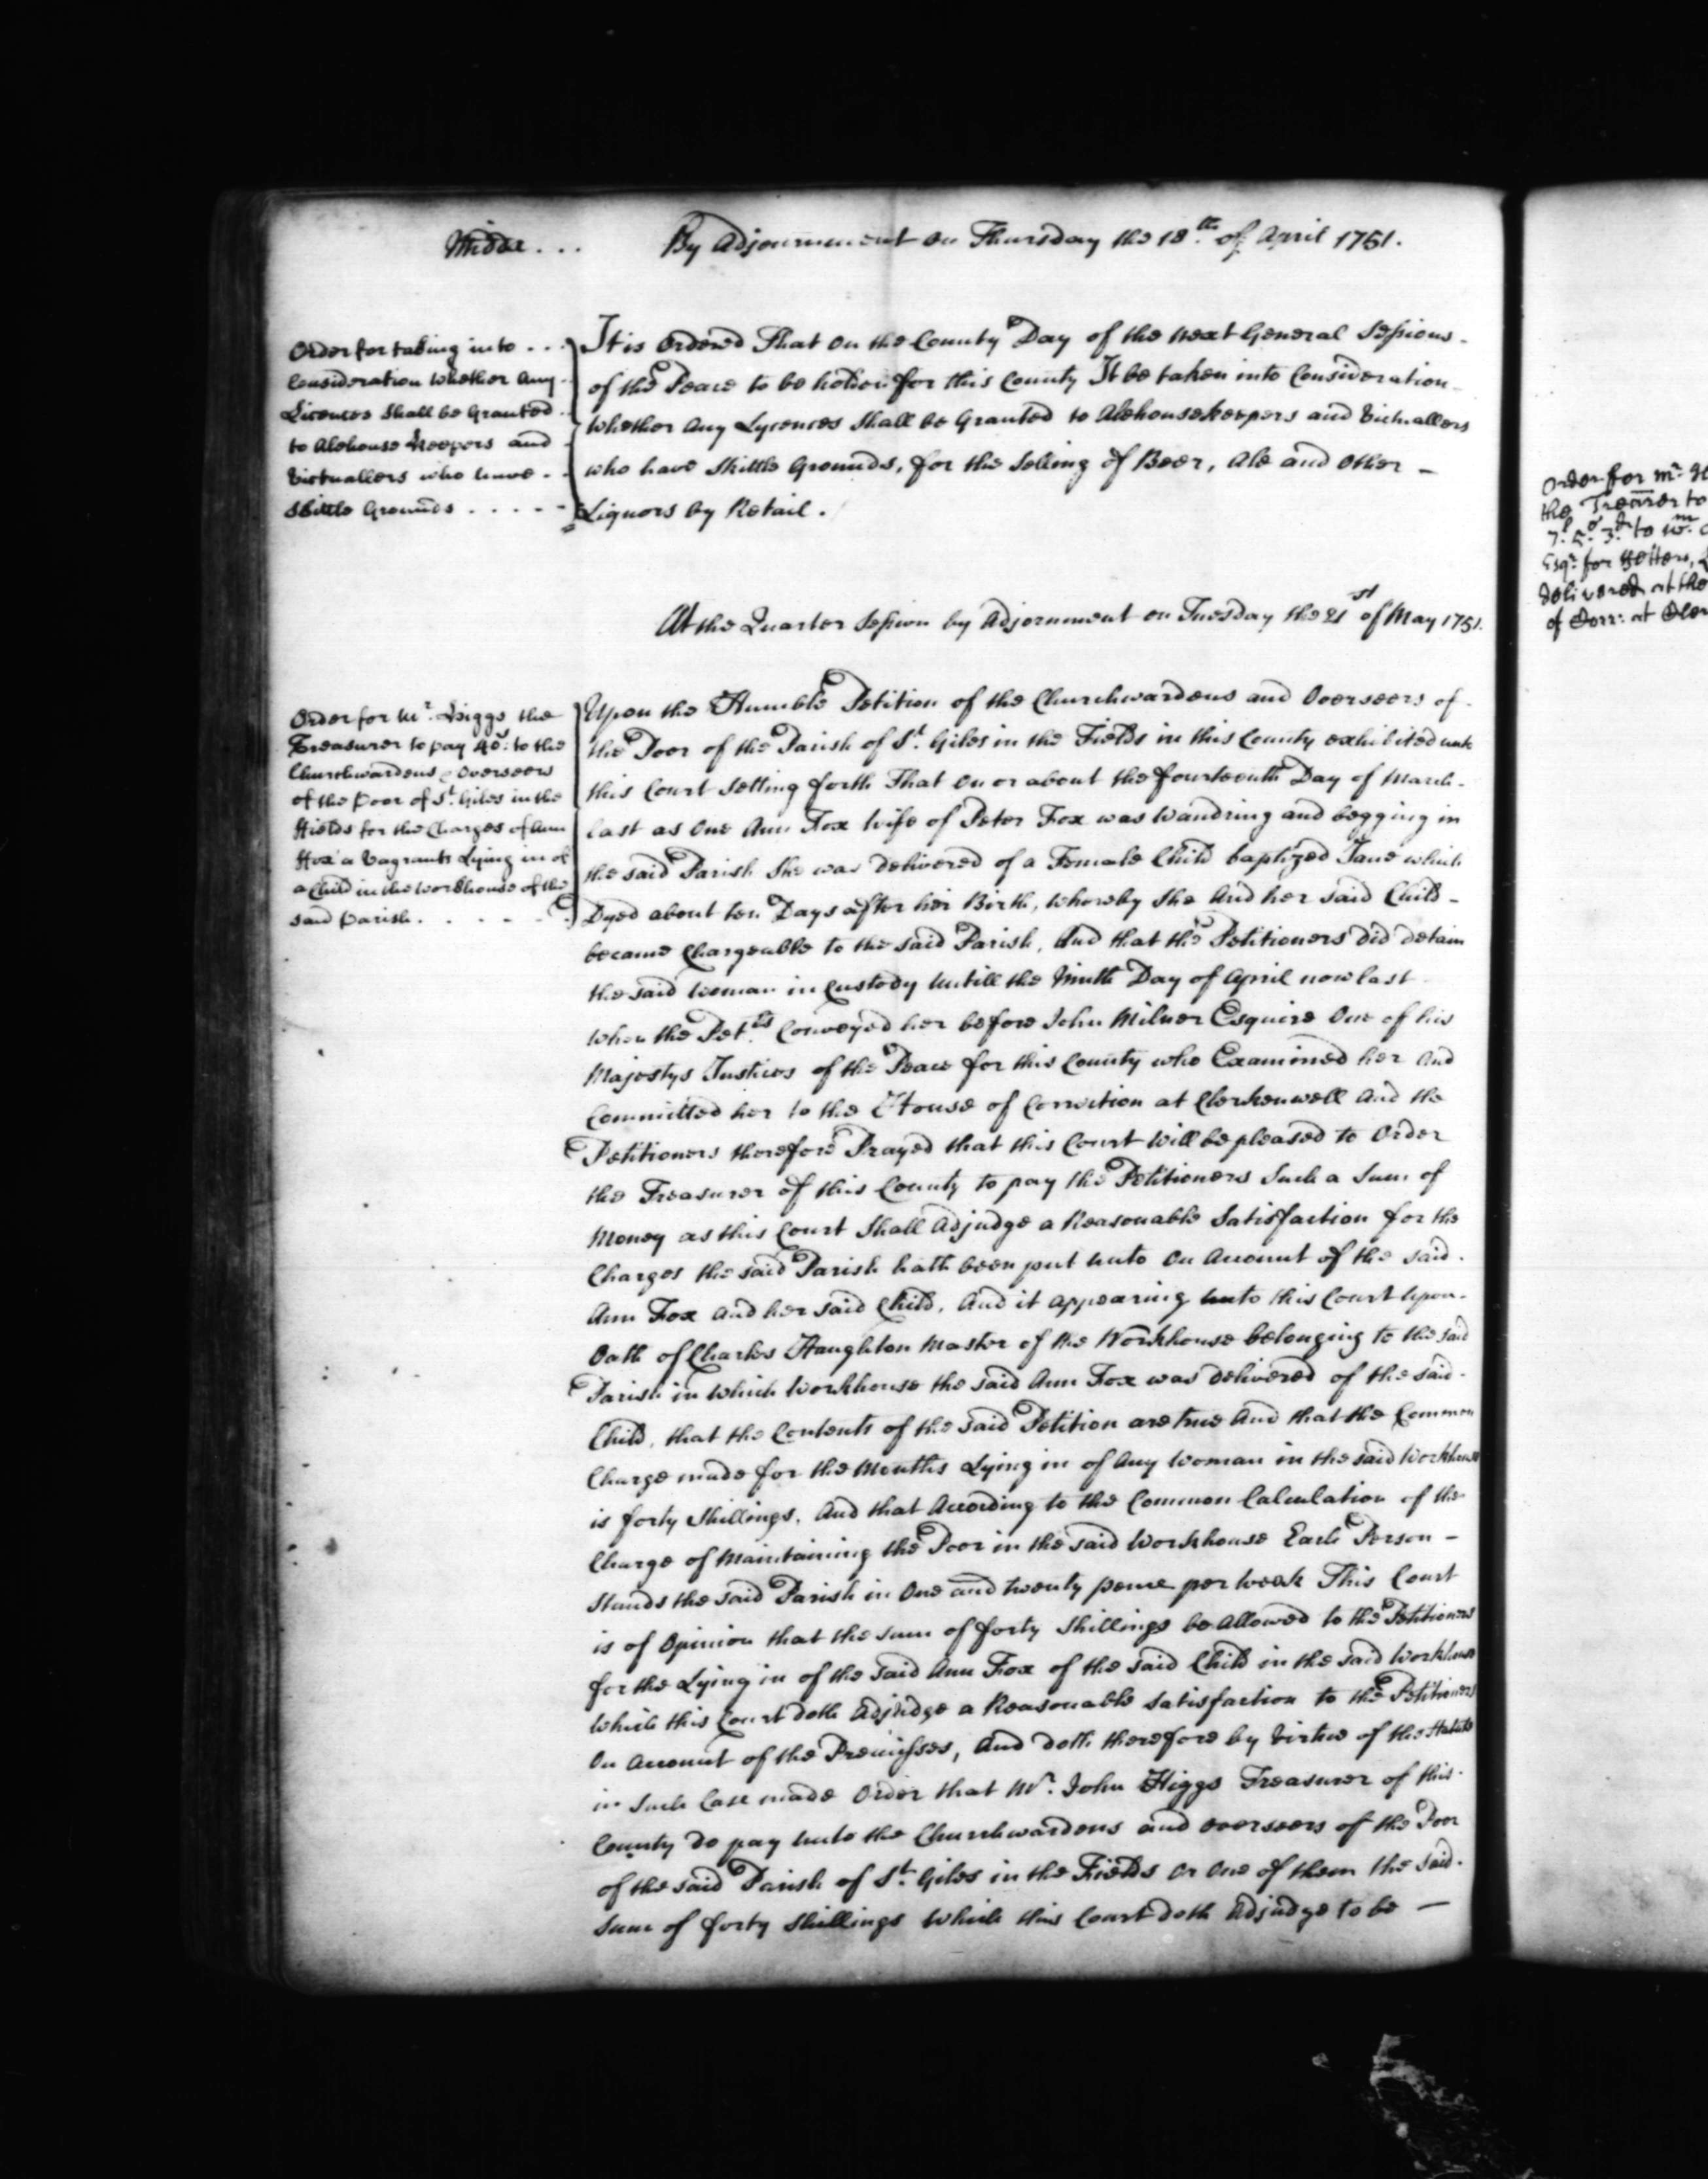 Middx ...
By Adjournment on Thursday the 18th. of April 1751.
Order for taking into ...
Consideration whether any
Licences shall be Granted
to Alehouse Keepers and
Victuallers who have ..
Skittle Grounds .....
It is Ordered That on the County Day of the next General Sessions
of the Peace to be holden for this County It be taken into Consideration
whether Any Lycences Shall be Granted to Alehousekeepers and Victuallers
who have Skittle Grounds, for the Selling of Beer, Ale and Other
Liquors by Retail.
At the Quarter Session by Adjornment on Tuesday the 21st of May 1751.
Order for Mr. Higgs the
Treasurer to pay 40s. to the
Churchwardens & Overseers
of the Poor of St. Giles in the
Fields for the Charges of Ann
Fox a Vagrants Lying in of
a Child in the Workhouse of the
said Parish.
Upon the Humble Petition of the Churchwardens and Overseers of
the Poor of the Parish of St. Giles in the Fields in this County exhibited unto
this Court Setting forth That on or about the fourteenth Day of March
last as One Ann Fox Wife of Peter Fox was Wandring and begging in
the said Parish She was delivered of a Female Child baptized Jane which
Dyed about ten Days after her Birth, whereby She And her said Child
became Chargeable to the said Parish, And that the Petitioners did detain
the said Woman in Custody Untill the Ninth Day of April now last
when the Petrs. Conveyed her before John Milner Esquire One of his
Majestys Justices of the Peace for this County who Examined her And
Committed her to the House of Correction at Clerkenwell And the
Petitioners therefore Prayed that this Court Will be pleased to Order
the Treasurer of this County to pay the Petitioners Such a Sum of
Money as this Court Shall Adjudge a Reasonable Satisfaction for the
Charges the said Parish hath been put unto On Account of the said
Ann Fox And her said Child, And it appearing unto this Court Upon
Oath of Charles Haughton Master of the Workhouse belonging to the said
Parish in which Workhouse the said Ann Fox was delivered of the said
Child, that the Contents of the said Petition are true And that the Common
Charge made for the Months Lying in of Any Woman in the said Workhouse
is forty Shillings. And that According to the Common Calculation of the
Charge of Maintaining the Poor in the said Workhouse Each Person
Stands the said Parish in One and twenty pence per Week This Court
is of Opinion that the Sum of forty Shillings be Allowed to the Petitioners
for the Lying in of the said Ann Fox of the said Child in the said Workhouse
Which this Court doth Adjudge a Reasonable Satisfaction to the Petitioners
On Account of the Premisses, And doth therefore by Virtue of the Statute
in Such Case made Order that Mr. John Higgs Treasurer of this
County do pay unto the Churchwardens and Overseers of the Poor
of the said Parish of St. Giles in the Fields Or One of them the said
Sum of forty Shillings Which this Court doth Adjudge to be
Order for Mr. H
the Trearer to
7l. 5s. 3d. to Wm.
Esqr. for
delivered at the
of Corr: at Cler